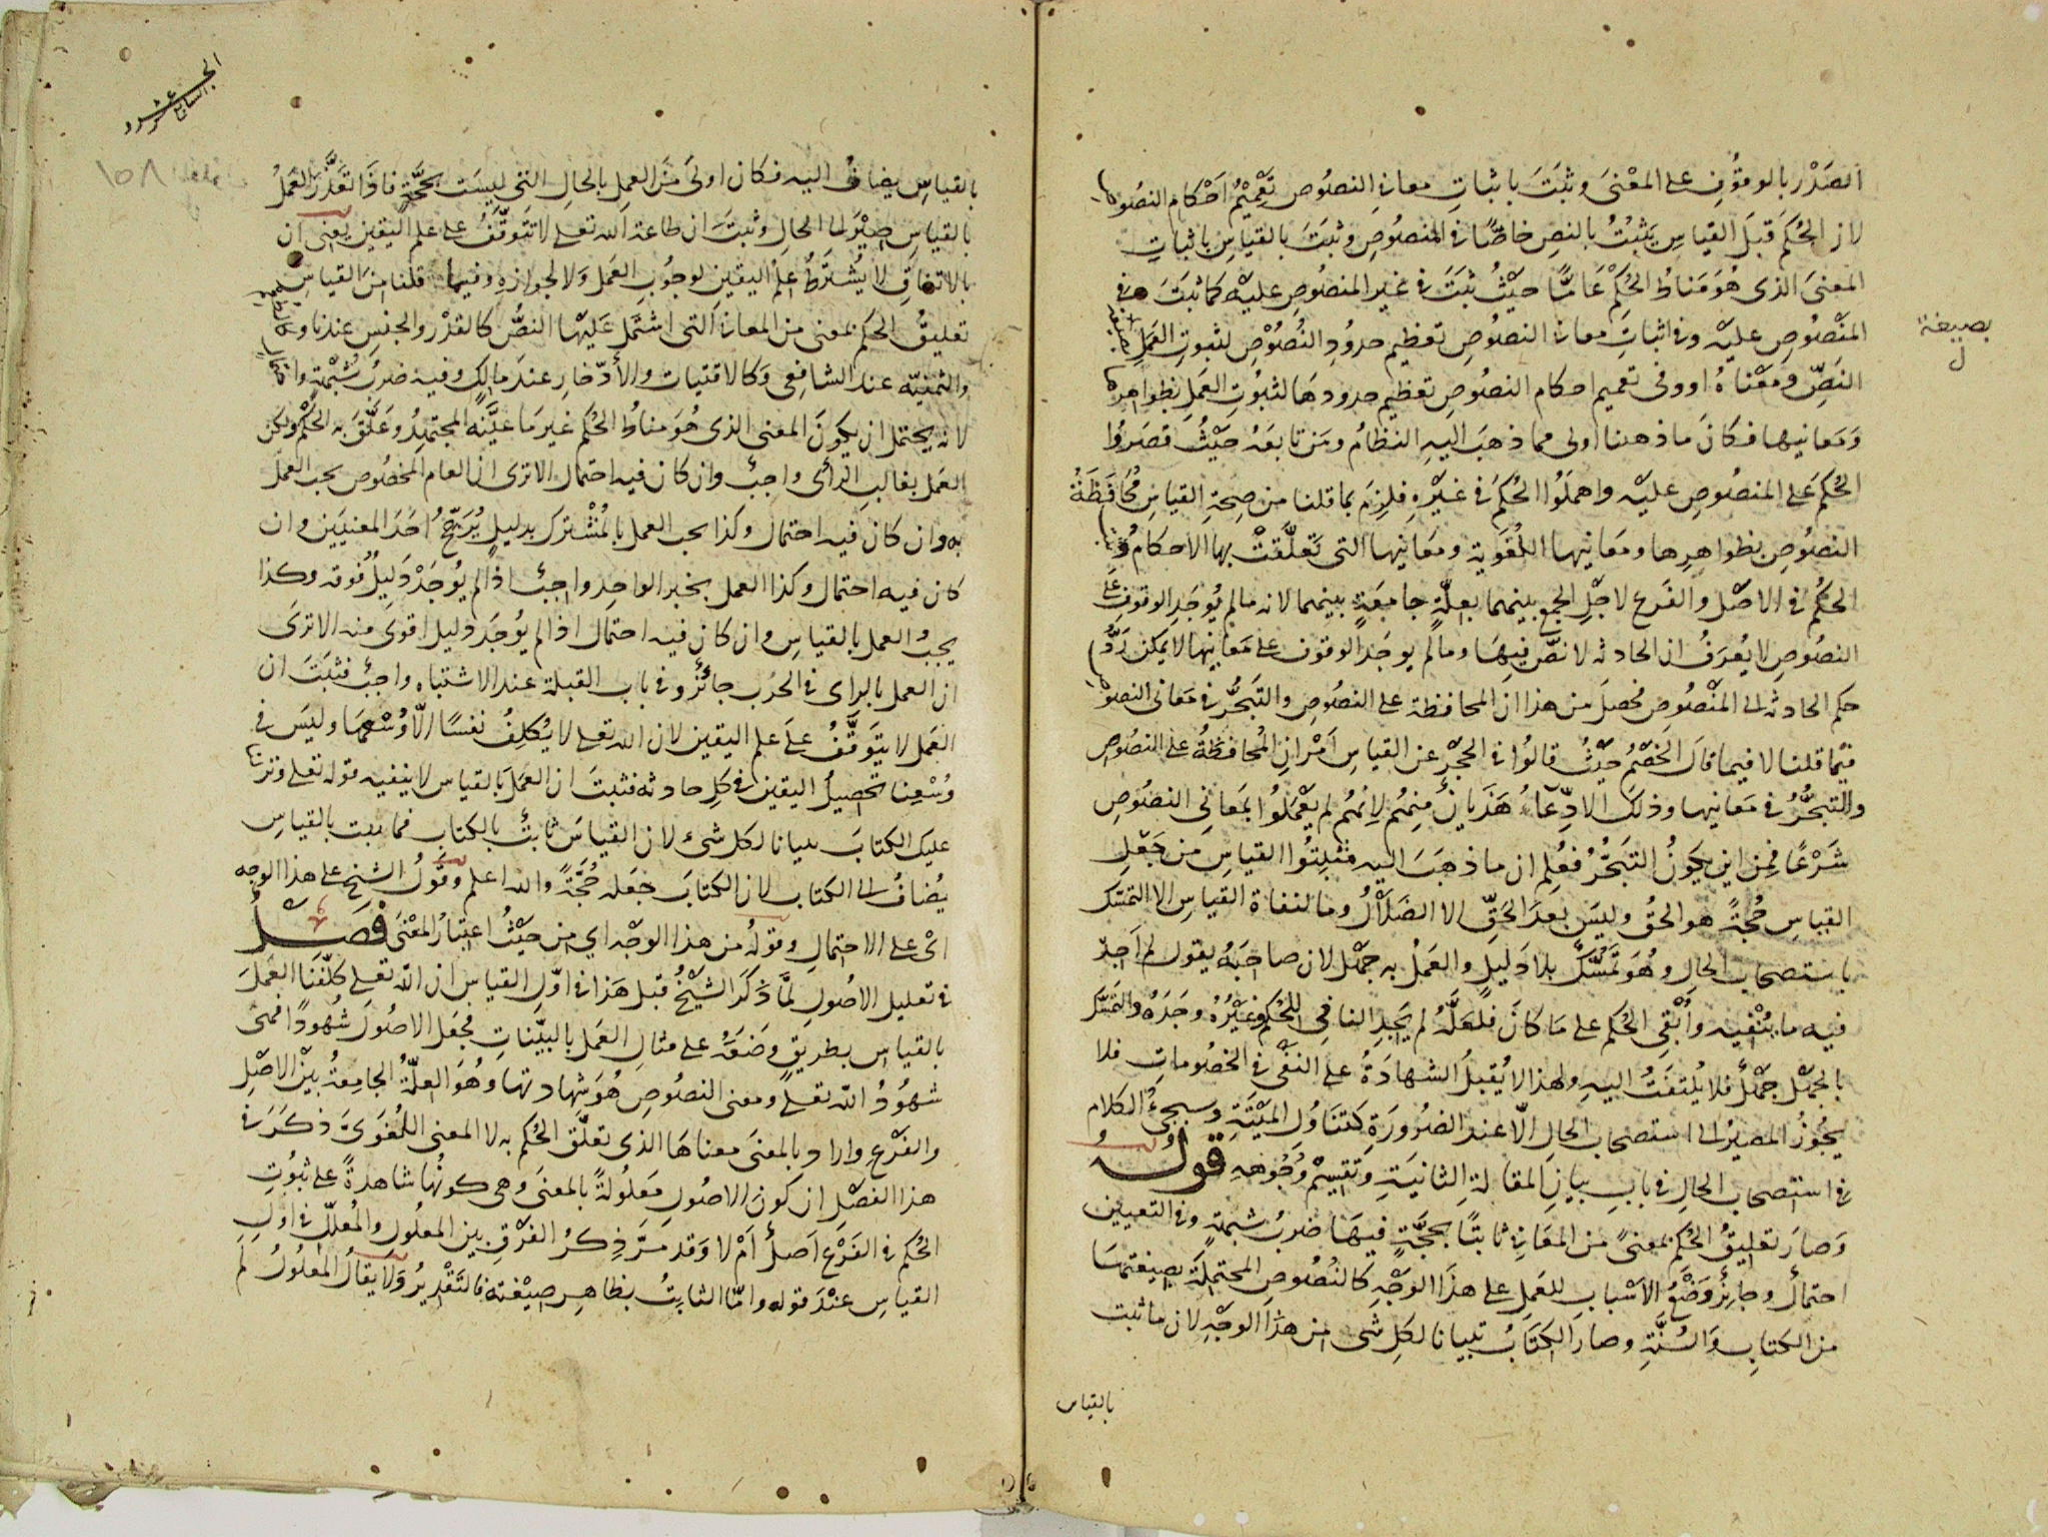 الصَدْر بالوقُوف على المعْنى وثبَتَ باثباتِ معاني النصُوص تعْمِيْمُ احْكام النصُوص
لان الحُكمَ قبلَ القياسِ يثبُتُ بالنصِ خاصًّا في المنصُوصِ وثبَتَ بالقياسِ باثباتِ
المعنىَ الذى هُوَ مَناطُ الحُكمْ عَامًّا حيْثُ ثبَتَ في غير المنصُوص عليه كما ثبَتَ في
المنْصُوصِ عليه وفى اثباتِ معانى النصُوصِ تعظيم حدُودِ النُصُوْصِ لثبوتِ العَملِ بصيغة
بصيغة
ل
النَصِّ ومعْناهُ او وفى تعميم احكام النصُوصِ تعظيم حدودهَا لثبُوتِ العَمَلِ بظواهِرها
وَمَعانيها فكانَ ما ذهبنا اولى مما ذهبَ اليهِ النظامُ ومَن تابعَهُ حيْثُ قصَروُا
الحُكمَ على المنصُوص عليْه واهمَلُوا الحُكمَ في غيْرهِ فلزمَ بما قلنا من صِحةِ القياسِ مُحافظةُ
النصُوصِ بظواهِرها ومَعانيها اللُغويةِ ومَعانيها التى تعلَّقتْ بها الاحكامُ وَ
الحكمُ في الاصْل والفَرع لاجْلِ الجمع بينهما بعِلّةٍ جامعَةٍ بينهما لانه مالم يُوجَدِ الوقوف على
النصُوصِ لا يُعرَفُ ان الحادثه لا نصّ فيها وما لم يوجَد الوقوف على مَعانيها لا يمكن رَدُّ
حكم الحادثه الى المنْصُوص فحَصلَ من هذا ان المحافظة على النصُوصِ والتبَحُّر في معانى النصوص
فيما قلنا لا فيما قالَ الخصْمُ حيْثُ قالوُا في الحجْر عن القياسِ امْرانِ المُحافظةُ على النصُوصِ
والتبحُّرُ في مَعانيها وذلكَ الادِّعآءُ هَذَيانٌ مِنهُم لانهُم لم يعْمَلوُا بمعَانى النصُوصِ
شَرْعًا فمِن اين يكونُ التبَحُّرُ فعُلِم ان ما ذهَبَ اليه مُثبِتُوا القياسِ من جَعْلِ
القياسِ حُجةً هو الحقُ وليسَ بعدَ الحَقِّ الا الضَلاَلُ وما لنفاة القياسِ الا التمسّك
باستصحاب الحالِ وهُوَ تمَسُّكٌ بلا دَليلٍ والعَملُ به جهْل لان صاحبَهُ يقول لم اَجدْ
فيه ما يَنْفِيه وأَبْقي الحُكم على ما كانَ فلعَلَّهُ لم يَجِدِ النافي للحُكم وغيْرُهُ وجَدَهُ والتمسّك
بالجَهْل جهْلٌ فلا يُلتفَتُ اليهِ ولهذا لا يُقبلُ الشهادَةُ على النفى في الخصُوماتِ فلا
يجُوزُ المصيرُ الى استصحاب الحالِ الّا عند الضرُورَةِ كتنَاوُلِ المَيْتَةِ وسيجىءُ الكلام
في استصحاب الحالِ في بابِ بيانِ المقالةِ الثانيَةِ وتقسيْم وُجُوهِهِ قوله
وَصارَ تعليقُ الحُكم بمعنىً من المعَانى ثابتًا بحُجَّةٍ فيها ضربُ شبهةٍ وفى التعيين
احتمالٌ وجائِزٌ وَضْعُ الاَسْبابِ للعَمِلِ على هذَا الوَجْهِ كالنُصُوصِ المحتملَة بصيغتها
من الكتابِ والسُنَّةِ وصارَ الكتَابُ تبيانا لكلِ شىءٍ من هذا الوَجْهِ لان ما ثبت
بالقياس
الجزء
السابع عشر
١٥٨
بالقياسِ يضافُ اليه فكان اولىَ منَ العملِ بالحالِ التى ليسَت بحجّةٍ فاذَا تعَذَّرَ العَملُ
بالقياسِ صِيْرَ الى الحالِ وثبَتَ ان طاعة الله تعلى لا تتوقّفُ على علم اليقين يعنى ان
بالاتفاقِ لا يُشترطُ علمُ اليقينِ لوجُوبِ العَمل وَلا لجوازهِ وفيما قلنا منَ القياسِ
تعليقُ الحكم بمعنى من المعانى التى اشتمل عليْها النصُّ كالقدْر والجنسِ عندنا و
والثمنيّه عند الشافعى وَكالاقتيات والأدّخارِ عندَ مالكٍ وفيه ضربُ شُبْهةٍ و
لانه يحتمل ان يكونَ المعنى الذى هُوَ مناطُ الحُكم غير مَا عيَّنَه المجتهدُ وعَلَّقَ به الحُكمْ ولكن
العَمل بغالبِ الرأى واجبٌ وان كان فيه احتمال الا ترى ان العام المخصُوص يجب العمل
به وان كان فيه احتمال وكذا يجب العمل بالمُشْترك بدليلٍ يُرَجّحُ احَدَ المعنيَين وان
كان فيه احتمال وكذا العمل بخبر الواحِدِ واجبٌ اذا لم يُوجَدْ دَليلٌ فوقه وكذا
يجبُ العمل بالقياسِ وان كان فيه احتمال اذا لم يُوجَد دليل اقوى منه الا ترى
ان العمل بالراى في الحرْب جائزٌ وفى باب القبلة عند الاشتباه واجبٌ فثبَتَ ان
العَمل لا يتوَقّفُ على علم اليقين لان الله تعلى لا يُكلِفُ نفسًا الّا وُسْعهَا وليسَ في
وُسْعِنا تحصيلُ اليقين في كل حادثه فثبتَ ان العمَلَ بالقياسِ لا ينفيه قوله تعلى ونزلنا
عليك الكتابَ تبيانا لكل شىء لان القياسَ ثابتٌ بالكتابِ فما يثبت بالقياسِ
يُضافُ الى الكتاب لان الكتابَ جَعله حُجَّةً والله اعلم وقولُ الشيخ على هذا الوجه
اىْ على الاحتمالِ وقولُهُ من هذا الوجْه اى من حيْثُ اعتبارُ المعْنىَ فَصْــلٌ
في تعليل الاصُولِ لمَّا ذكرَ الشيْخُ قبل هَذا في اوّلِ القياسِ ان الله تعلى كلّفنَا العَملَ
بالقياس بطريقٍ وضَعَهُ على مثالِ العَمل بالبيّناتِ فجعَل الاصُولَ شُهُودًا فهى
شهُودُ الله تعلى ومعنى النصُوصِ هُوَ شهادتها وهُوَ العلّةُ الجامعةُ بينَ الاصْلِ
والفرْعِ واراد بالمعنىَ معناهَا الذى تعلّقَ الحُكم به لا المعنى اللُغَوىَّ ذكرَ في
هذا الفصْلِ ان كونَ الاصُولِ مَعلُولةً بالمعنىَ وهى كونُها شاهدةً على ثبُوتِ
الحُكم في الفَرْعِ اَصلٌ اَمْ لا وَقد مَرَّ ذِكرُ الفرْقِ بين المعلُولِ والمُعلّلِ في اوّلِ
القياسِ عنْدَ قوله وامّا الثابِتُ بظاهِرِ صيْغته فالتقْدِيرُ وَلا يقالُ المعْلُولُ لم